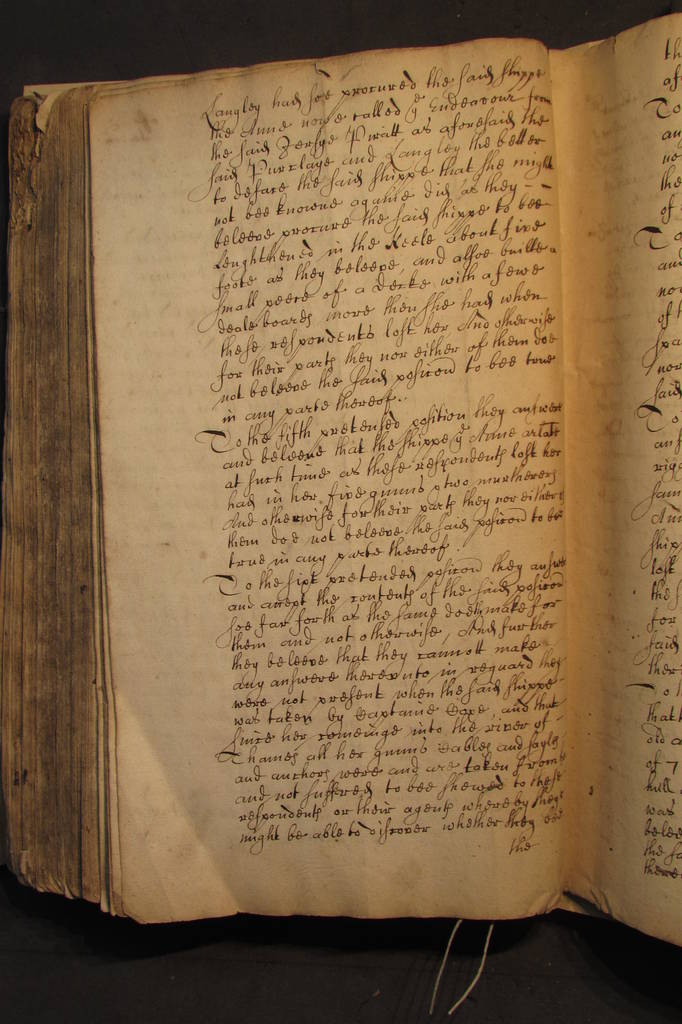 Langley had soe procured the said shippe
the Anne nowe called ye Endeavour from
the said Zersye Piratt as aforesaid the
said Purclaye and Langley the better
to deface the said shippe that she might
not bee knowne againe did as they - -
beleeve procure the said shippe to bee
Lenghthened in the Keele about five
foote as they beleeve, and alsoe builte a
small peece of a decke with a fewe
deale boards more then she had when
these respondents lost her, And otherwise
for their parts they nor either of them doe
not beleeve the said posicon to bee true
in any parte thereof.
To the fifth pretended position they answere
and beleeve that the shippe ye Anne arlate
at such time as these respondents lost her
had in her five gunns & two murtherers
And otherwise for their parts they nor either of
them doe not beleeve the said posicon to bee
true in any parte thereof.
To the sixt pretended posicon they answere
and accept the contents of the said posicon
soe far forth as the same doeth make for
them and not otherwise, And further
they beleeve that they cannott make
any answere thereunto in reguard they
were not present when the said shippe
was taken by Captaine Pope, and that
since her comeinge into the river of
Thames all her gunns Cables and sayles
and anchors were and are taken from her
and not suffered to bee shewed to these
respondents or their agents whereby they
might be able to discover whether they bee
the
th
af
To
an
no
the
of
To
and
no
of t
spa
nor
said
To
anf
rigg
sam
Ann
ship
lost
the s
for
said
ther
To t
that
old a
of 7
hull
was
belee
the sa
there